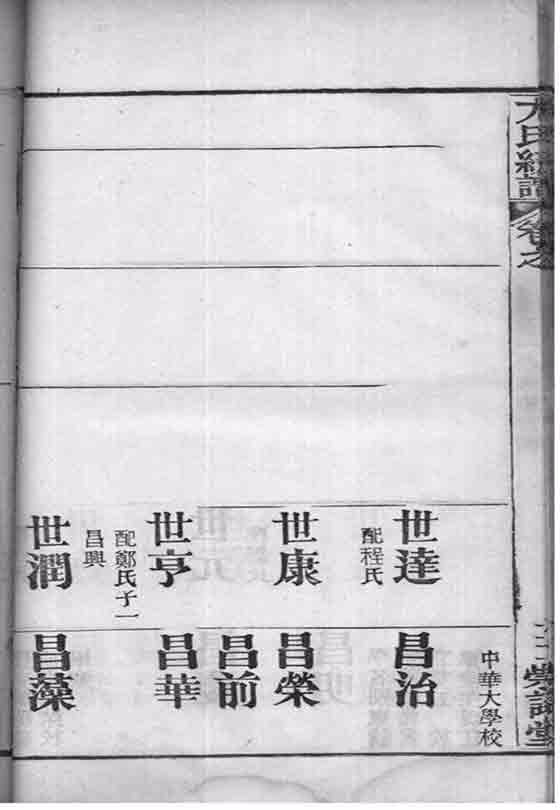 卷之
世達
配程氏
世康
世亨
配鄭氏子一
昌興
世潤
中華大學校
昌治
昌榮
昌前
昌華
昌藻